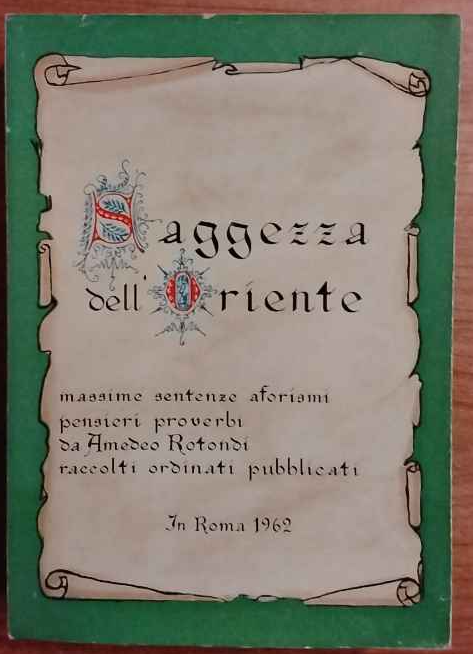 Saggezza
dell'Oriente
massime sentenze aforismi
pensieri proverbi
da Amedeo Rotondi
raccolti ordinati pubblicati
In Roma 1962